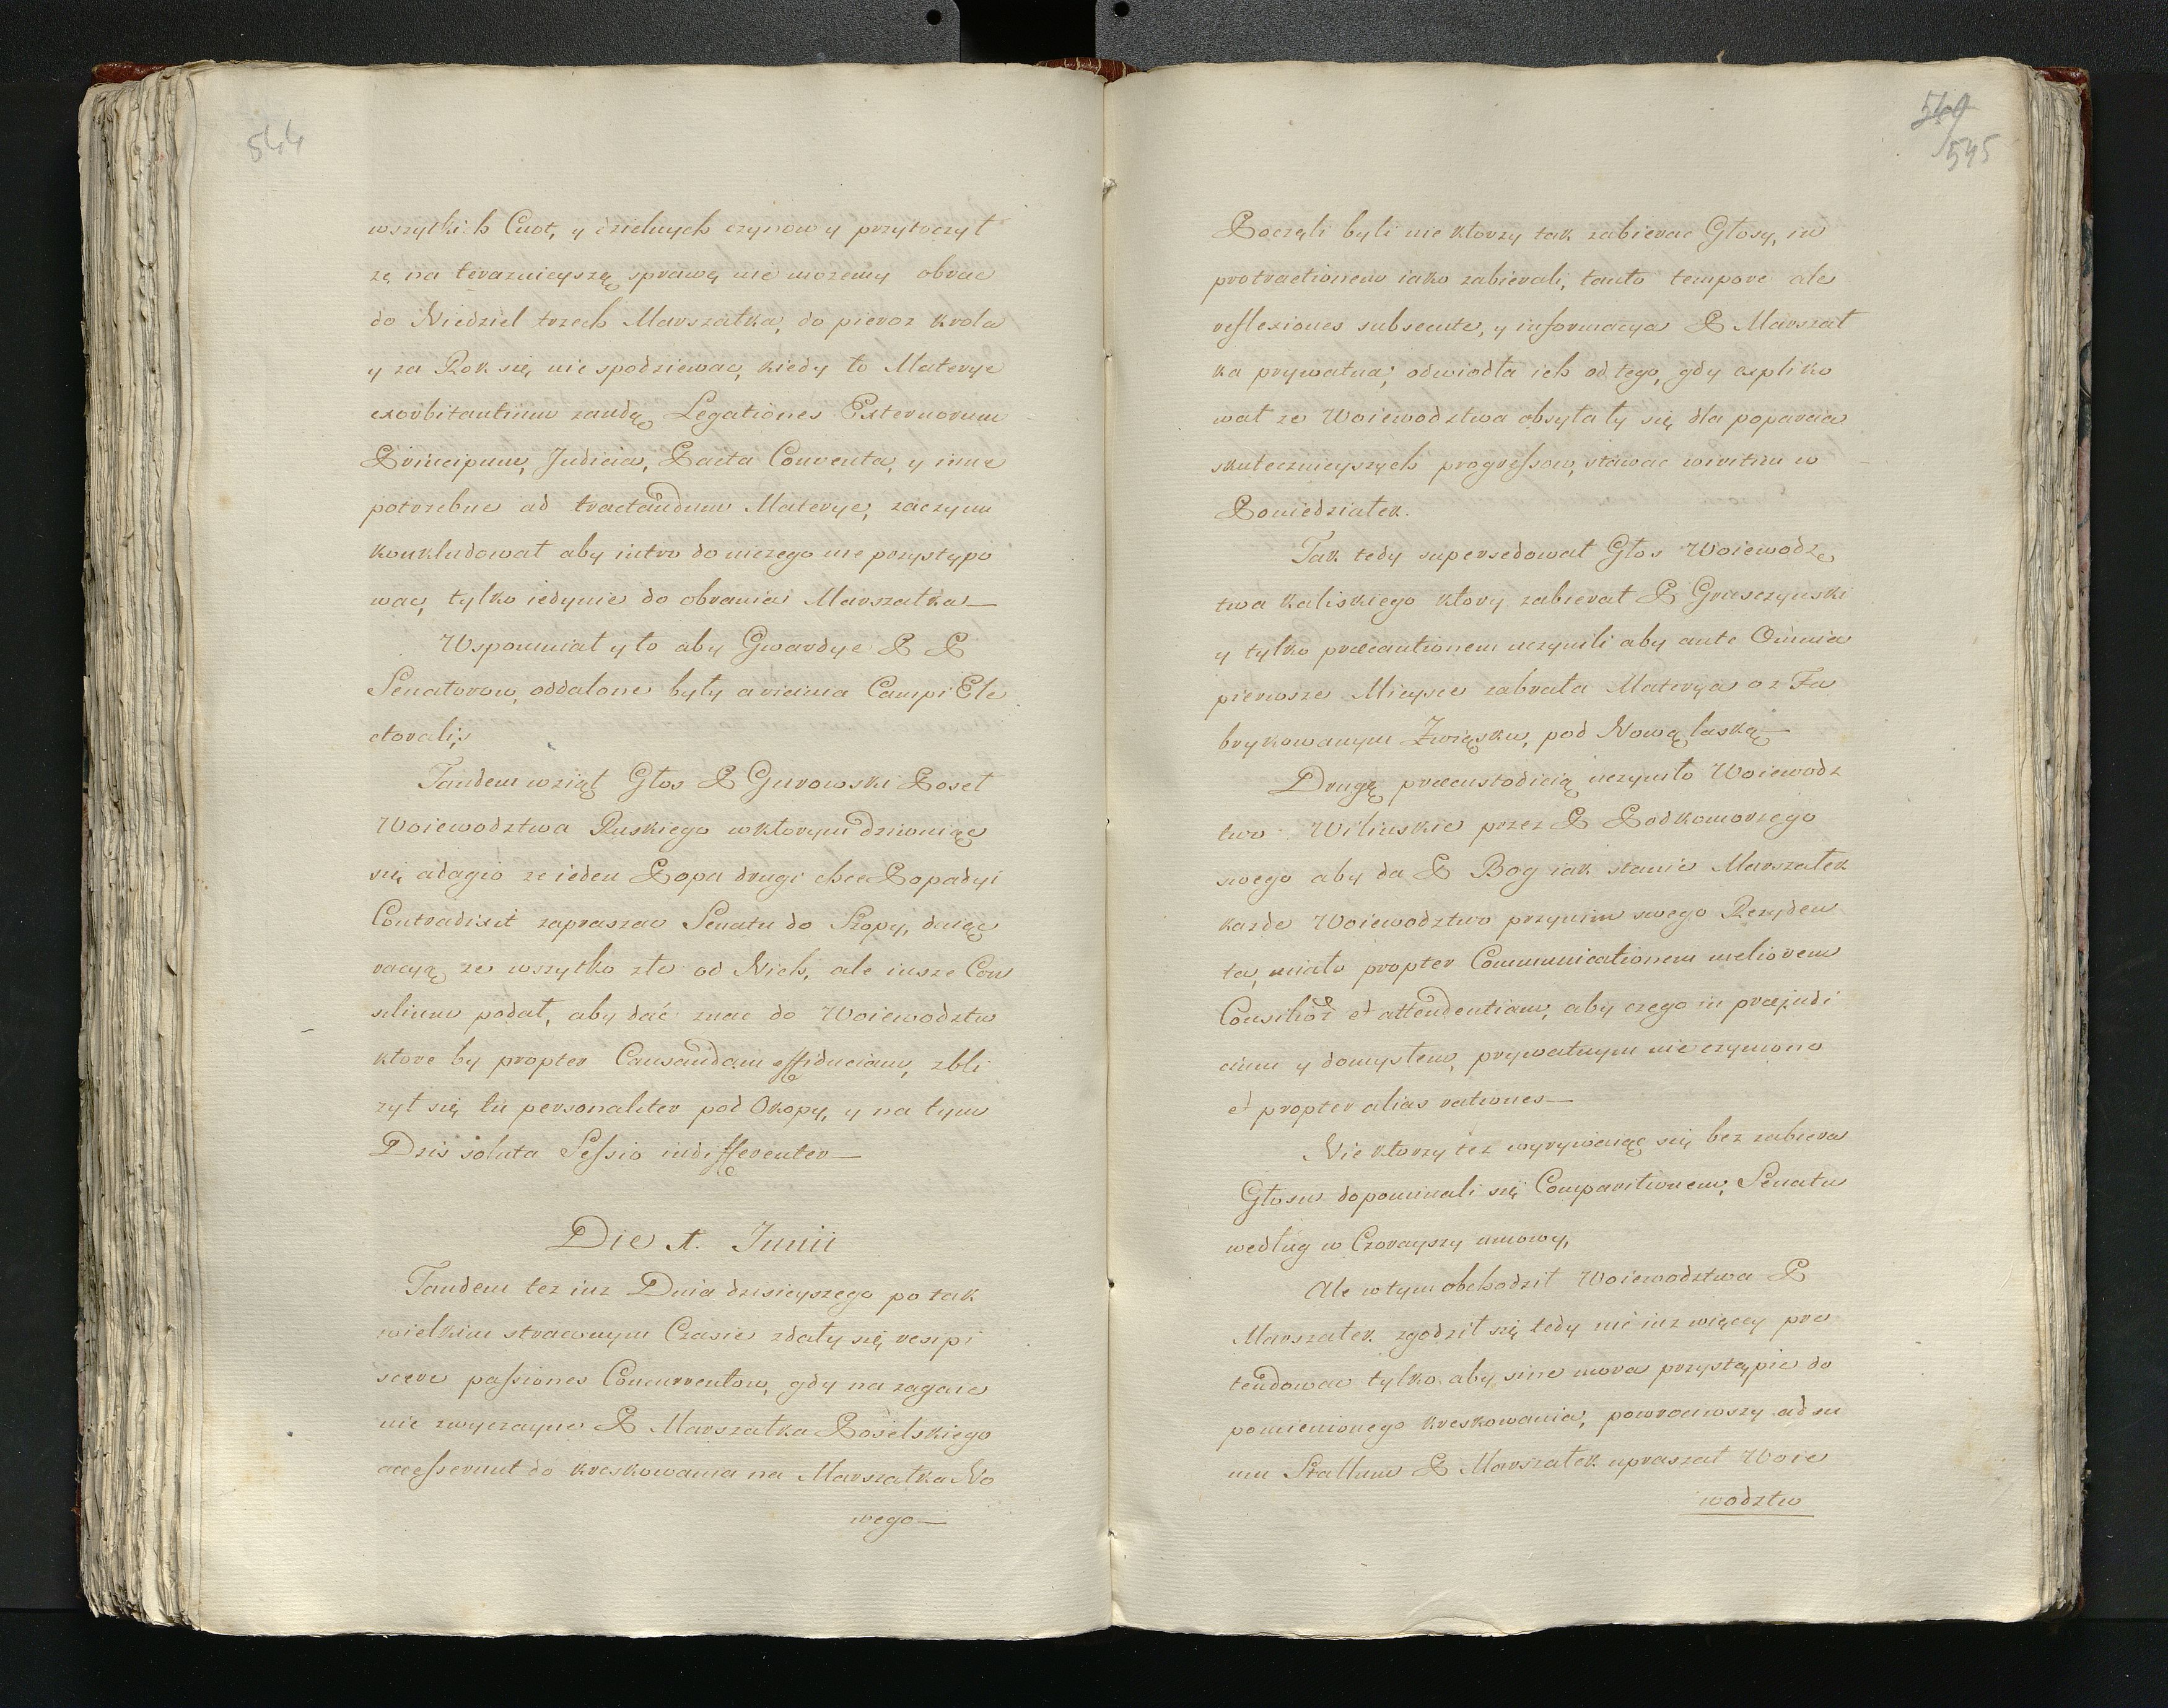 544
wszytkich Cnot, y dzielnych czynow y przytoczył
zę na teraznieyszę sprawę nie mozemy obrac
do Niedziel trzech Marszałka, do pieroz krola
y za Rok się nie spodziewac, kiedy to Materye
exorbitantium zaudą Legationes Externorum
Principum, Judicia, Pacta Conventa, y inne
potrzebne ad tractandum Materye, zaczym
konkludował aby iutro do niczego nie przystępo
wac, tylko iedynie do obrania Marszałka—
Wspomniał y to aby Gwardye P P
Senatorow, oddalone były a vicinia Campi Ele
ctoralis
Tandem wziął Głos P Gurowski Poseł
Woiewodztwa Ruskiego w ktorym dziwuiąc
się adagio ze ieden Popa drugi chce Popadyi
Contradixit zapraszac Senatu do Szopy, daiąc
racyą ze wszytko złe od Nich, ale insze Con
silium podał, aby dać znac do Woiewodztw
ktore by propter Causandam diffiduciam, zbli
zył się tu personaliter pod Okopy, y na tym
Dzis soluta Sessio indifferenter—
Die 1. Junii
Tandem tez iuz Dnia dzisieyszego po tak
wielkim strawnym Czasie zdały się resipi
scere passiones Concurrentow, gdy na zagaie
nie zwyczayne P Marszałka Poselskiego
accesserunt do kreskowania na Marszałka No
wego—
549
545
Poczęli byli nie ktorzy tak zabierac Głosy, in
protractionem iako zabierali, tanto tempore ale
reflexiones subsecute, y informacya P Marszał
ka prywatna, odwiodła ich od tego, gdy expliko
wał ze Woiewodztwa obsyłały się dla poparcia
skutecznieyszych progressow, stawac viritim w
Poniedziałek.
Tak tedy supersedował Głos Woiewodz
twa kaliskiego ktory zabierał P Gruszczynski
y tylko præcautionem uczynili aby ante Omnia
pierwsze Mieysce zabrała Materya o z Fa
brykowanym Związku, pod Nową laską—
Drugą præcustodicią uczyniło Woiewodz
two Wilinskie przez P Podkomorzego
swego aby da P Bog iak stanie Marszałek
kazde Woiewodztwo przy nim swego Rezyden
ta, miało propter Communicationem meliorem
Consilior et attendentiam, aby czego in præjudi
cium y domysłem, prywatnym nie czyniono
et propter alias rationes—
Nie ktorzy tez wyrywaiąc się bez zabiera
Głosu dopominali się Comparitionem, Senatu
według w Czorayszy umowy,
Ale w tym obchodził Woiewodztwa P
Marszałek zgodził się tedy nic iuz więcey pre
tendowac tylko aby sine mora przystąpic do
pomienionego kreskowania, powrociwszy ad su
um Stallum P Marszałek upraszał Woie
wodztw